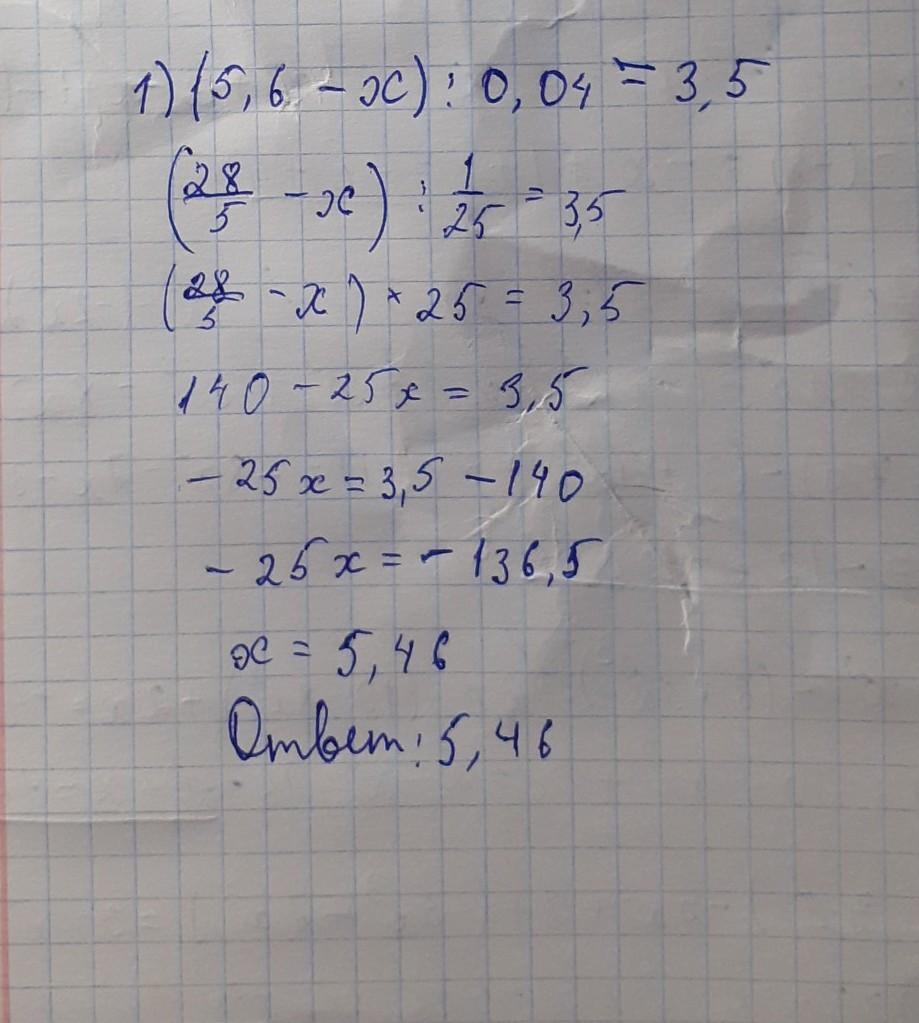 1) (5,6 - x) : 0,04 = 3,5
(28/5 - x) : 1/25 = 3,5
(28/5 - x) × 25 = 3,5
140 - 25x = 3,5
- 25x = 3,5 - 140
- 25x = - 136,5
x = 5,46
Ответ: 5,46